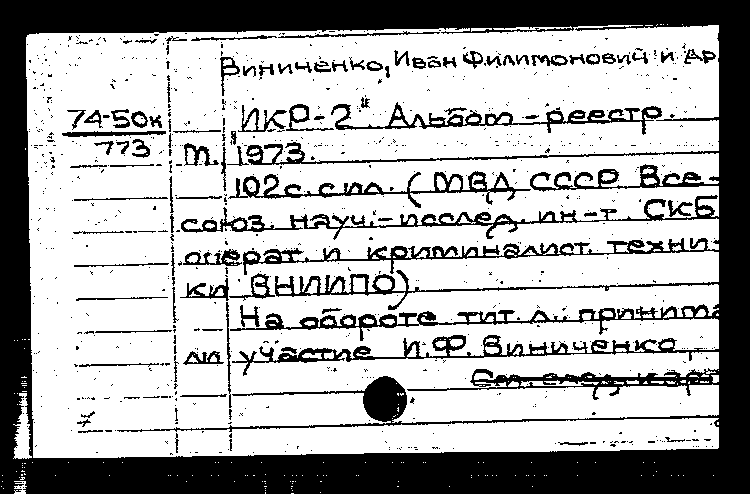 Виниченко, Иван Филимонович и др.
74-50к
773
"ИКР-2" Альбом-реестр.
М. 1973.
102с. с ил. (МВД СССР Все-
союз. науч.-исслед. ин-т. СКБ
операт. и криминалист. техни-
ки ВНИИПО).
На обороте тит. л.: принима
ли участие И.Ф. Виниченко,
См. след. карт